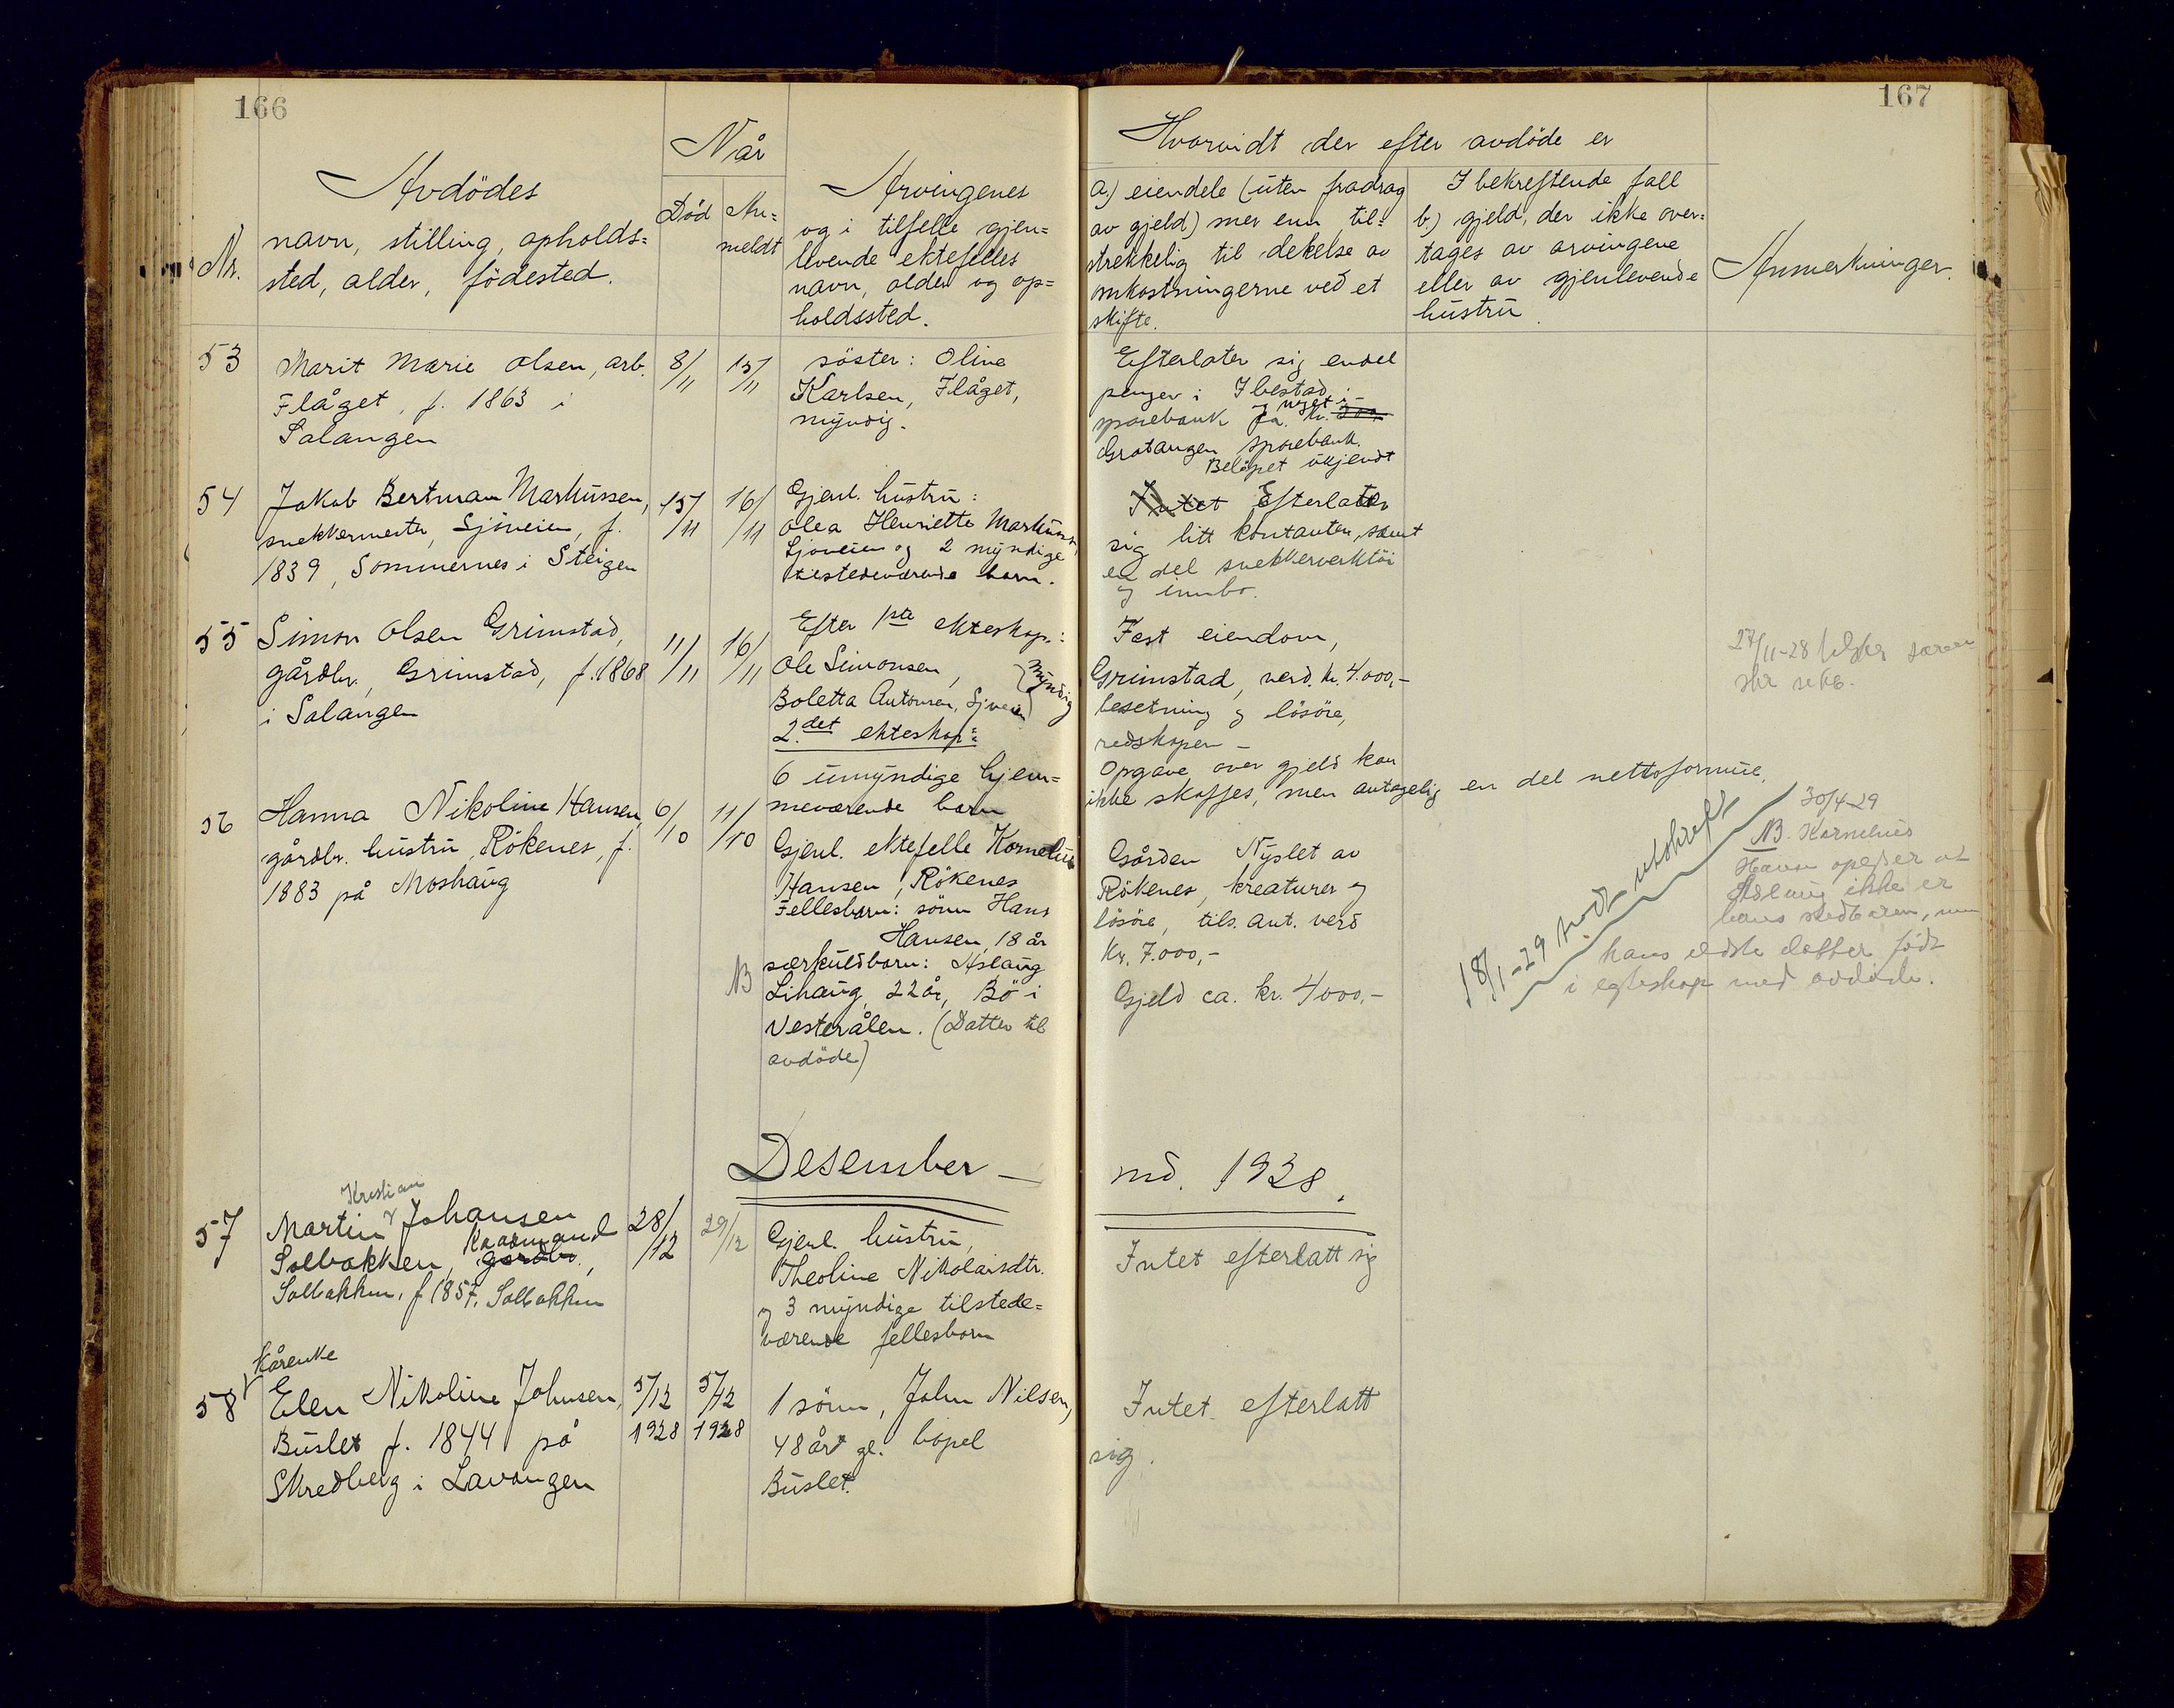 166
Avdödes
navn, stilling, opholds=
sted, alder, födested.
Nr.
Når
Död
An=
meldt
Arvingenes
og i tilfelle gjen=
levende ektefelles
navn, alder og op=
holdssted.
53
Marit Marie Olsen, arb.
Flåget, f. 1863 i
Salangen
8/11
15/11
söster: Oline
Karlsen, Flåget,
myndig.
54
Jakob Bertman Markussen,
snekkermester, Sjöveien, f.
1839, Sommernes i Steigen
15/11
16/11
Gjenl. hustru:
Olea Henriette Markussen,
Sjöveien og 2 myndige
tilstedeværende barn.
55
Simon Olsen Grimstad,
gårdbr., Grimstad, f. 1868
i Salangen
11/11
16/11
Efter 1ste ekteskap:
Ole Simonsen,
Boletta Antonsen, Sjöveien
myndig
2.det ekteskap:
6 umyndige hjem=
meværende barn
56
Hanna Nikoline Hansen,
gårdbr. hustru, Rökenes, f.
1883 på Moshaug
6/10
11/10
Gjenl. ektefelle Kornelius
Hansen, Rökenes
Fellesbarn: sönn Hans
Hansen, 18 år
særkuldbarn: Aslaug
NB
Lihaug, 22 år, Bö i
Vesterålen. (Datter til
avdöde)
Desember –
57
Kristian
Martin Johansen
Solbakken, Kaarmand gårdbr.,
Solbakken, f 1857, Solbakken
28/12
29/12
Gjenl. hustru,
Theoline Nikolaisdtr.
og 3 myndige tilstede=
værende fellesbarn
Kårenke
58
Elen Nikoline Johnsen,
Buslet f. 1844 på
Skredberg i Lavangen
5/12
1928
5/12
1928
1 sönn, John Nilsen,
48 år gl. bopel
Buslet.
167
Hvorvidt der efter avdöde er
a) eiendele (uten fradrag
av gjeld) mer enn til=
strekkelig til dekelse av
omkostningerne ved et
skifte.
I bekreftende fall
b) gjeld, der ikke over=
tages av arvingene
eller av gjenlevende
hustru.
Anmerkninger.
Efterlater sig endel
penger i Ibestad
sparebank og noget i
ca. kr. 300
Gratangen sparebank.
Belöpet ukjendt
Intet Efterlater
sig litt kontanter, samt
en del snekkerverktöi
og innbo.
Fast eiendom,
Grimstad, verd. kr. 4.000,-
besetning og lösöre,
redskaper –
Opgave over gjeld kan
ikke skaffes, men antagelig en del nettoformue.
27/11-28
Gården Nyslet av
Rökenes, kreaturer og
lösöre, tils. ant. verd
Kr. 7.000,-
Gjeld ca. kr. 4000,-
18/1-29 mott utskrift
30/4-29
NB. Kornelius
Hansen opgiver at
Aslaug ikke er
hans stedbarn, men
hans eldste datter födt
i egteskap med avdöde.
md. 1928.
Intet efterlatt sig
Intet efterlatt
sig.